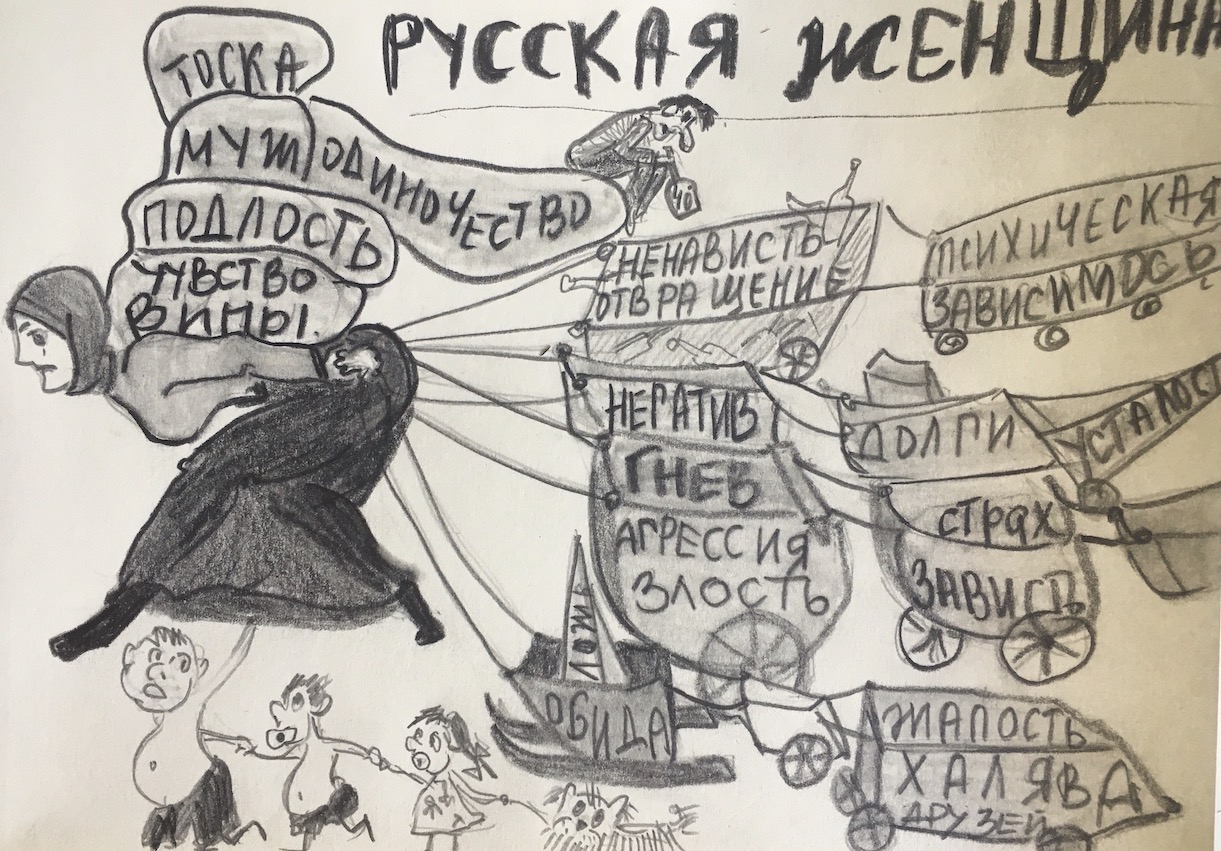 РУССКАЯ ЖЕНЩИНА
ТОСКА
МУЖ
ОДИНОЧЕСТВО
40
ПОДЛОСТЬ
ЧУВСТВО
ВИНЫ.
НЕНАВИСТЬ
ОТВРАЩЕНИЕ
ПСИХИЧЕСКАЯ
ЗАВИСИМОСЬ
НЕГАТИВ
ГНЕВ
АГРЕССИЯ
ЗЛОСТЬ
ДОЛГИ
УСТАЛОСТ
СТРАХ
ЗАВИСТЬ
ОБИДА
ЖАЛОСТЬ
ХАЛЯВА
ДРУЗЕЙ